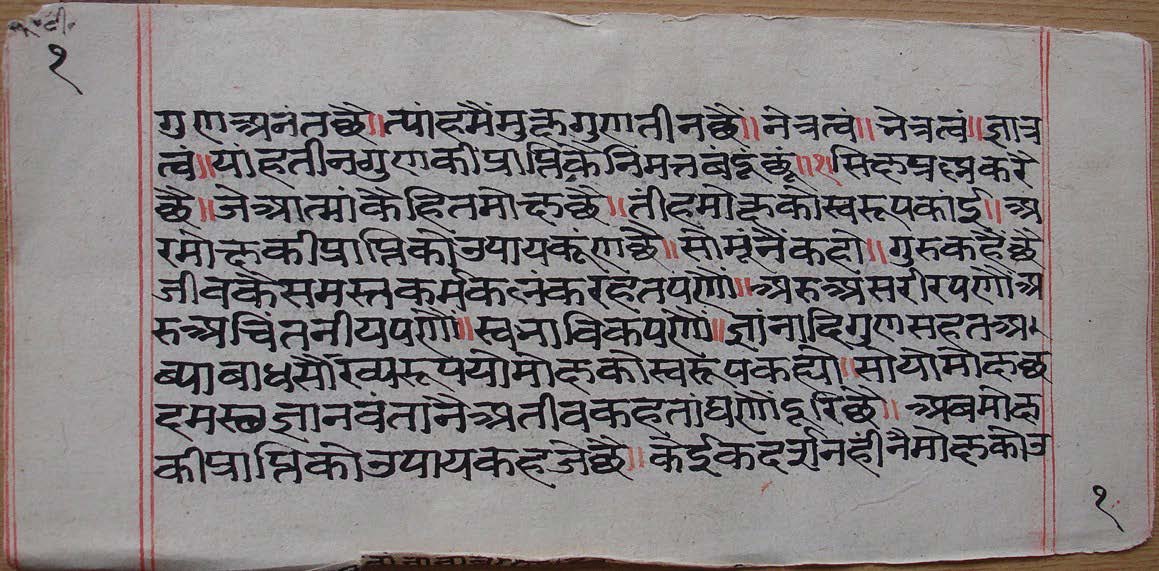 १
गुणअनंतछै॥त्यांहमैंमुक्षगुणतीनछै॥नेत्रत्वं॥नेत्रत्वं॥ज्ञात्र
त्वं॥यांहतीनगुणकीप्राप्तिकैनिमत्तबंदूंछूं॥१॥सिक्षप्रश्नकरै
छै॥जेआत्मांकैहितमोक्षछै॥तींहमोक्षकोस्वरूपकांई॥अ
रमोक्षकीप्राप्तिकोउपायकूंणछै॥सोमूंनैंकहो॥गुरुकहैंछै
जीवकैसमस्तकर्मकलंकरहतपणौं॥अरुअंसरीरपणौंअ
रुअचिंतनीयपणौं॥स्वभाविकपणौं॥ज्ञांनादिगुणसहतअ
व्याबाधसौख्यरूपयोमोक्षकोस्वरूपकह्यो॥सोयोमोक्षछ
दमस्छज्ञानवंतांनैअतीवकहतांघणौंदूरिछै॥अबमोक्ष
कीप्राप्तिकोउपायकहजेछै॥केईकदर्शनहीनैमोक्षकोउ
१